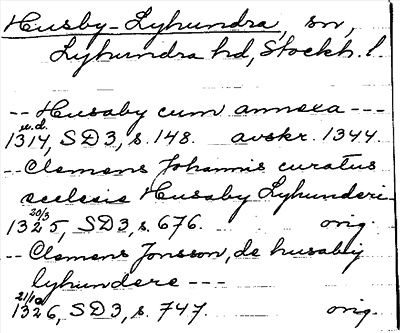 Husby-Lyhundra, sn,
Lyhundra hd, Stockh. l.
-- Husaby cum annexa ---
u.d.
1314, SD 3, s. 148. avskr. 1344.
-- Clemens Johannis curatus
ecclesie Husaby Lyhunderi
20/3
1325, SD 3, s. 676. orig.
-- Clemens Jonsson, de husaby
lyhundere ---
21/10
1326, SD 3, s. 747. orig.